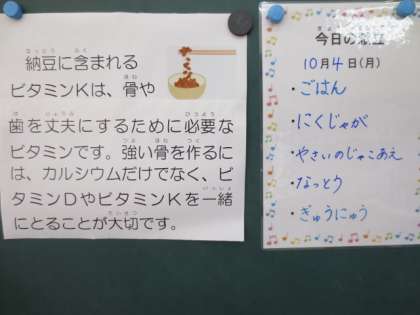 納豆に含まれる
ビタミンKは、骨や
歯を丈夫にするために必要な
ビタミンです。強い骨を作るに
は、カルシウムだけでなく、ビ
タミンDやビタミンKを一緒
にとることが大切です。
今日の献立
10月4日(月)
・ごはん
・にくじゃが
・やさいのじゃこあえ
・なっとう
・ぎゅうにゅう